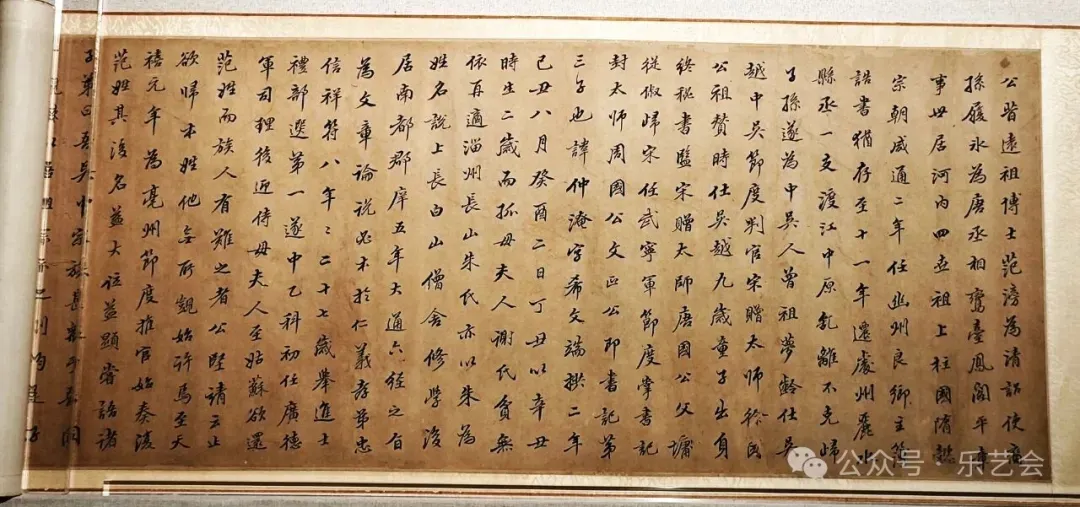 公昔遠祖博士范滂為清詔使裔
孫履氷為唐丞相鸞臺鳳閣平章
事世居河內四世祖上柱國隋懿
宗朝咸通二年任幽州良鄉主簿
誥書猶存至十一年遷處州麗水
縣丞一支渡江中原亂離不克歸
子孫遂為中吳人曾祖夢齡仕吳
越中吳節度判官宋贈太師徐國
公祖贊時仕吳越九歲童子出身
終秘書監宋贈太師唐國公父墉
從俶歸宋任武寧軍節度掌書記
封太師周國公文正公即書記第
三子也諱仲淹字希文端拱二年
己丑八月癸酉二日丁丑以辛丑
時生二歲而孤母夫人謝氏貧無
依再適淄州長山朱氏亦以朱為
姓名說上長白山僧舍修學後
居南都郡庠五年大通六經之旨
為文章論說必本於仁義孝弟忠
信祥符八年二十七歲舉進士
禮部選第一遂中乙科初任廣德
軍司理後迎侍母夫人至姑蘇欲還
范姓而族人有難之者公堅請云止
欲歸本姓他無所覬始許焉至天
禧元年為亳州節度推官始奏復
范姓其後名益大位益顯嘗語諸
子弟曰吾吳中宗族甚衆於吾固
公众号·乐艺会